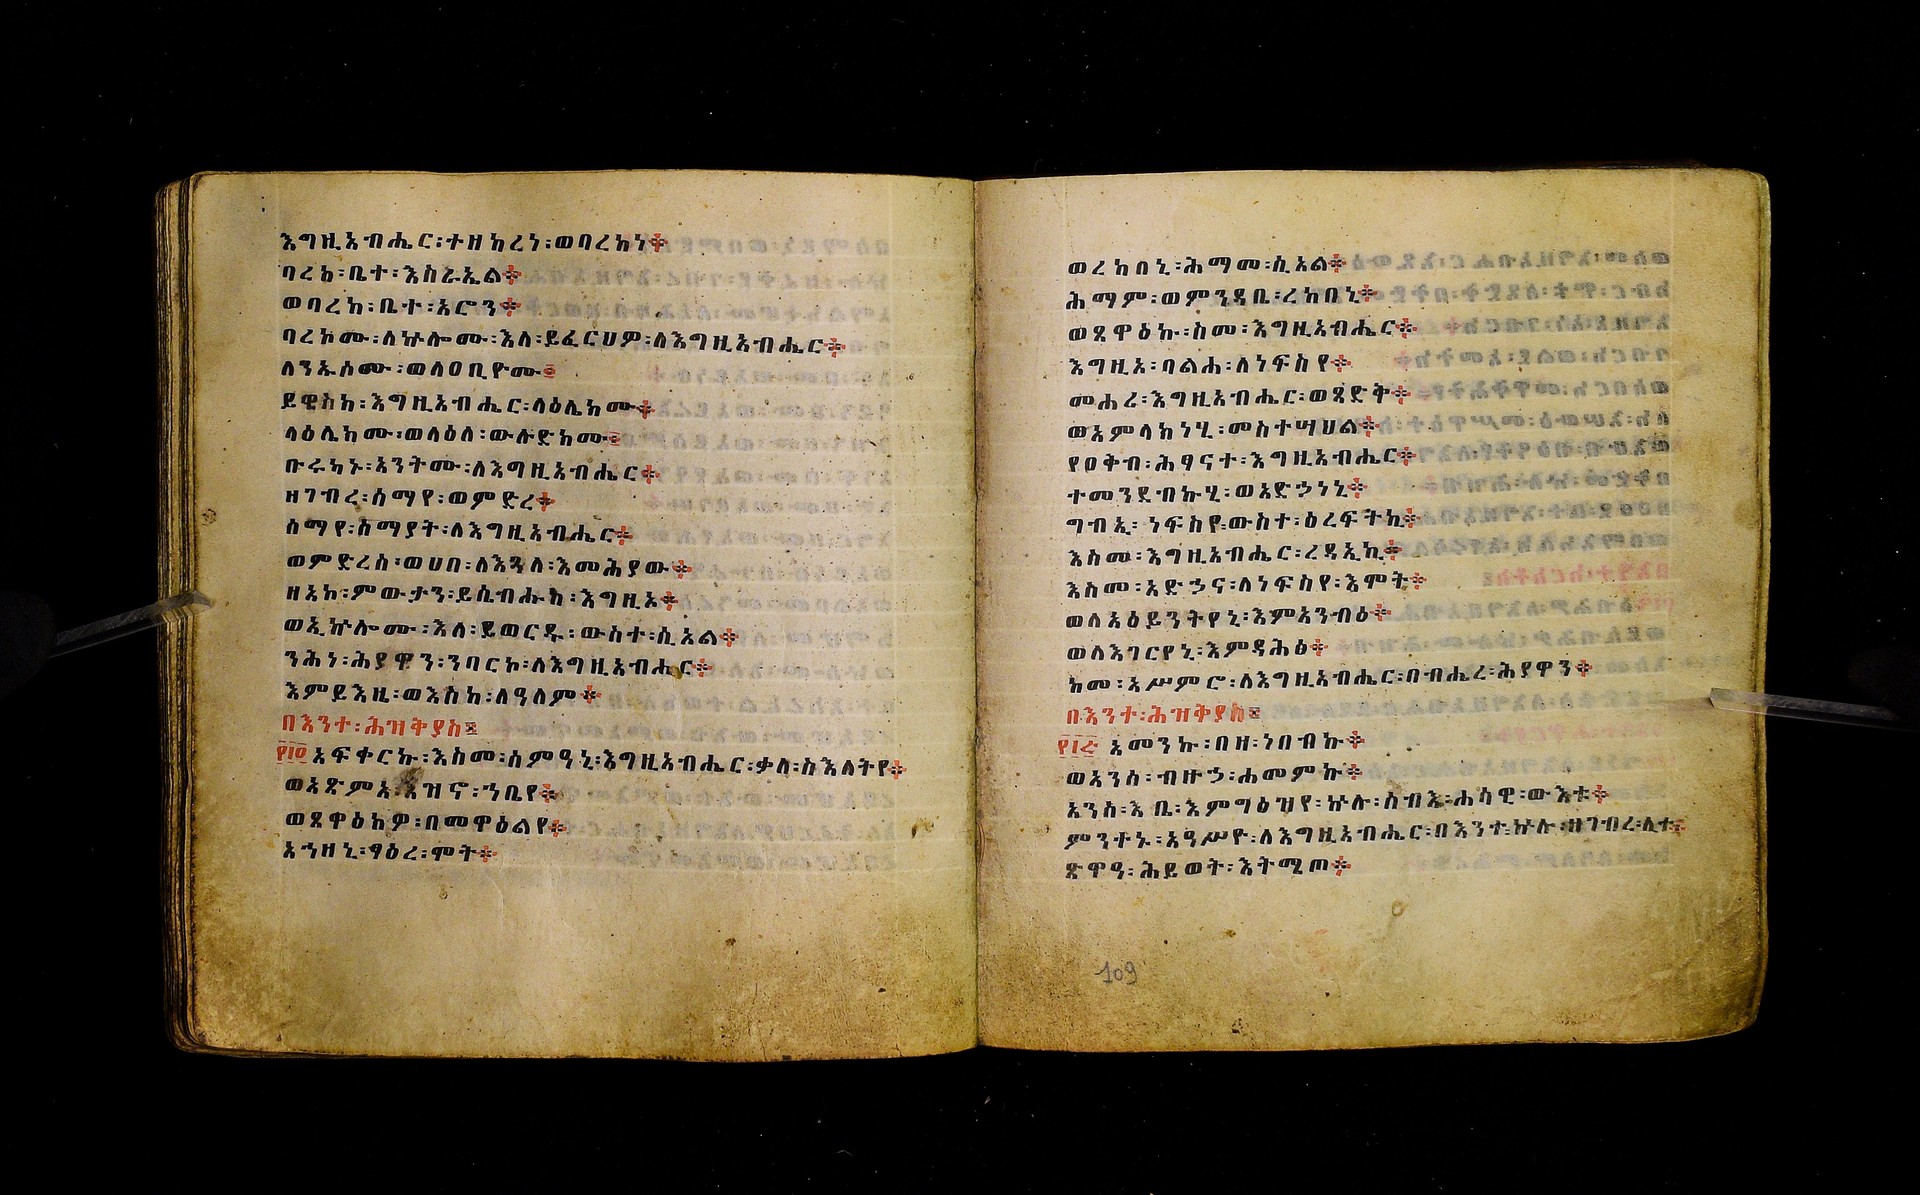 እግዚአብሔር፡ተዘከረነ፡ወባረከነ፨
ባረከ፡ቤተ፡እስራኤል፨
ወባረከ፡ቤተ፡አሮን፨
ባረኮሙ፡ለኵሎሙ፡እለ፡ይፈርህዎ፡ለእግዚአብሔር፨
ለንኡሰሙ፡ወለዐቢዮሙ፨
ይዌስክ፡እግዚአብሔር፡ላዕሌክሙ፨
ላዕሌክሙ፡ወላዕለ፡ውሉድክሙ፨
ቡሩካኑ፡አንትሙ፡ለእግዚአብሔር፨
ዘገብረ፡ሰማየ፡ወምድረ፨
ሰማየ፡ሰማያት፡ለእግዚአብሔር፨
ወምድረሰ፡ወሀበ፡ለእጓለ፡እመሕያው፨
ዘአከ፡ምውታን፡ይሴብሑከ፡እግዚኦ፨
ወኢኵሎሙ፡እለ፡ይወርዱ፡ውስተ፡ሲኦል፨
ንሕነ፡ሕያዋን፡ንባርኮ፡ለእግዚአብሔር፨
እምይእዜ፡ወእስከ፡ለዓለም፨
በእንተ፡ሕዝቅያስ፨
፻፲፬ አፍቀርኩ፡እስመ፡ሰምዓኒ፡እግዚአብሔር፡ቃለ፡ስእለትየ፨
ወአጽምአ፡እዝኖ፡ኀቤየ፨
ወጸዋዕክዎ፡በመዋዕልየ፨
አኀዘኒ፡ፃዕረ፡ሞት፨
ወረከበኒ፡ሕማመ፡ሲኦል፨
ሕማም፡ወምንዳቤ፡ረከበኒ፨
ወጸዋዕኩ፡ስመ፡እግዚአብሔር፨
እግዚኦ፡ባልሐ፡ለነፍስየ፨
መሐሪ፡እግዚአብሔር፡ወጻድቅ፨
ወአምላክነሂ፡መስተሣህል፨
የዐቅብ፡ሕፃናተ፡እግዚአብሔር፨
ተመንደብኩሂ፡ወአድኃነኒ፨
ግብኢ፡ነፍስየ፡ውስተ፡ዕረፍትኪ፨
እስመ፡እግዚአብሔር፡ረዳኢኪ፨
እስመ፡አድኃና፡ለነፍስየ፡እሞት፨
ወለአዕይንትየኒ፡እምአንብዕ፨
ወለእገርየኒ፡እምዳሕፅ፨
ከመ፡አሥምሮ፡ለእግዚአብሔር፡በብሔረ፡ሕያዋን፨
በእንተ፡ሕዝቅያስ፨
፻፲፭ አመንኩ፡በዘ፡ነበብኩ፨
ወአንሰ፡ብዙኃ፡ሐመምኩ፨
አንሰ፡እቤ፡እምግዕዝየ፡ኵሉ፡ሰብእ፡ሐሳዊ፡ውእቱ፨
ምንተኑ፡አዓሥዮ፡ለእግዚአብሔር፡በእንተ፡ኵሉ፡ዘገብረ፡ሊተ፨
ጽዋዓ፡ሕይወት፡እትሜጦ፨
109